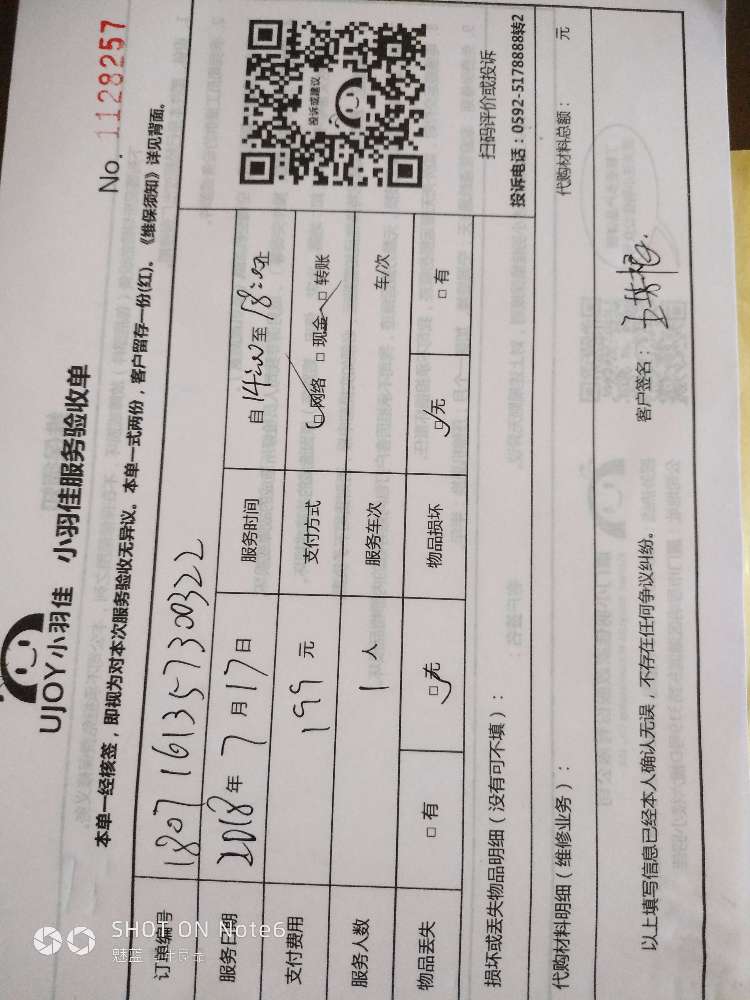 UJOY小羽佳 小羽佳服务验收单
No. 1128257
本单一经核签，即视为对本次服务验收无异议。本单一式两份，客户留存一份(红)。《维保须知》详见背面。
订单编号 1807161357300322
服务日期 2018年7月17日 服务时间 自14:00至18:00止
支付费用 199元 支付方式 □网络 □现金 □转账
服务人数 1人 服务车次 车/次
物品丢失 □有 □无 物品损坏 □无 □有
投诉或建议
扫码评价或投诉
投诉电话：0592-5178888转2
损坏或丢失物品明细（没有可不填）：
代购材料明细（维修业务）： 代购材料总额： 元
以上填写信息已经本人确认无误，不存在任何争议纠纷。 客户签名：
SHOT ON Note6